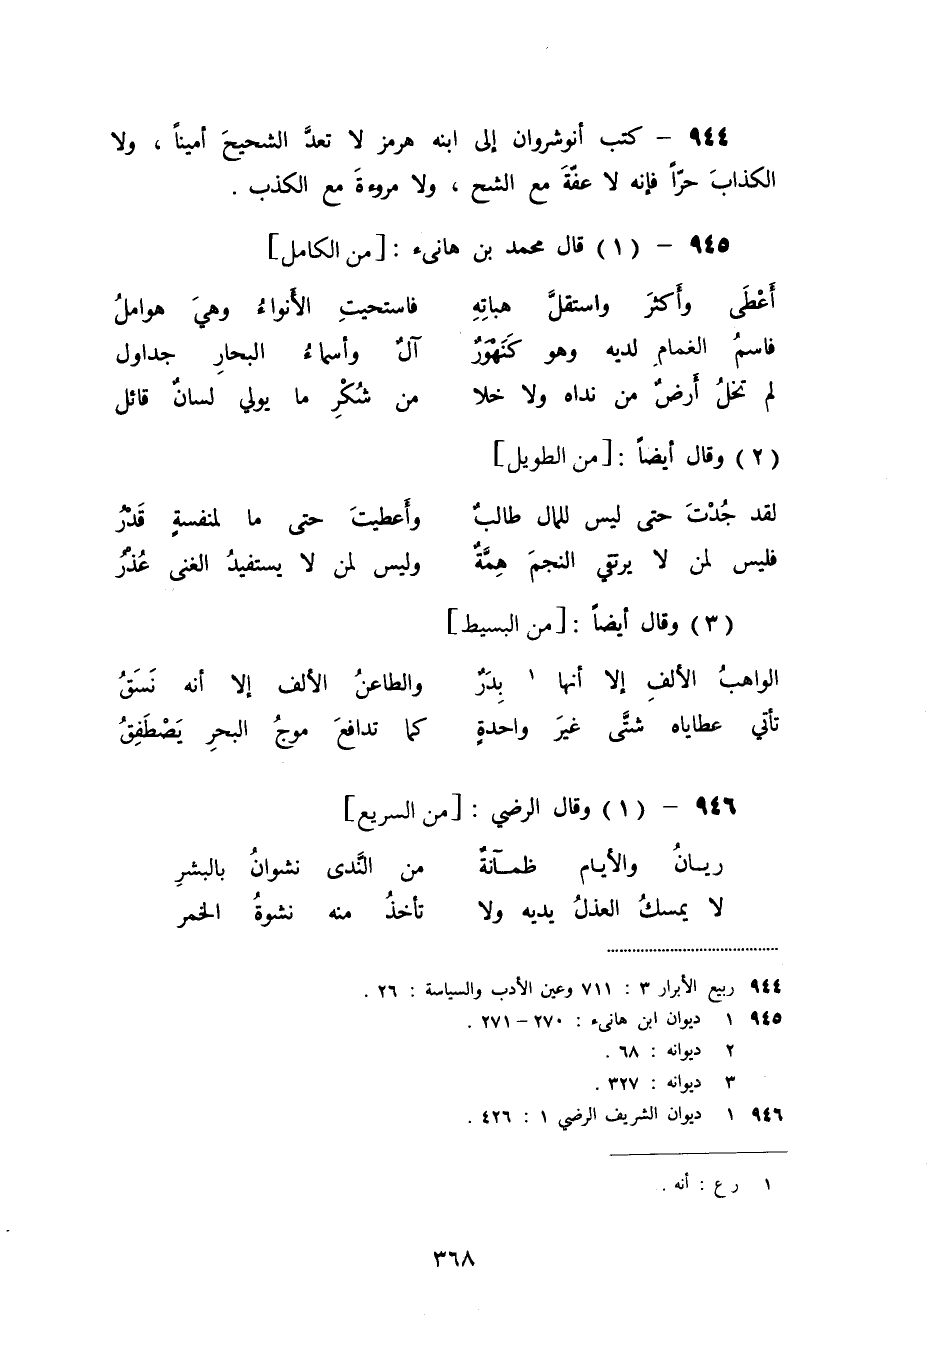 ٩٤٤ – كتب أنوشروان إلى ابنه هرمز لا تعدَّ الشحيحَ أميناً ، ولا
الكذابَ حرّاً فإنه لا عفّةَ مع الشح ، ولا مروءةَ مع الكذب .
٩٤٥ – (١) قال محمد بن هانىء : [من الكامل]
أَعْطَى وأَكثرَ واستقلَّ هباتِهِ فاستحيتِ الأَنواءُ وهيَ هواملُ
فاسمُ الغمامِ لديه وهو كَنَهْوَرٌ آلٌ وأسماءُ البحارِ جداول
لم تخلُ أَرضٌ من نداه ولا خلا من شُكْرِ ما يولي لسانٌ قائل
(٢) وقال أيضاً : [من الطويل]
لقد جُدْتَ حتى ليس للمال طالبٌ وأَعطيتَ حتى ما لمنفسةٍ قَدْرُ
فليس لمن لا يرتقي النجمَ هِمَّةٌ وليس لمن لا يستفيدُ الغنى عُذْرُ
(٣) وقال أيضاً : [من البسيط]
الواهبُ الألفِ إلا أنها ١ بِدَرٌ والطاعنُ الألف إلا أنه نَسَقُ
تأتي عطاياه شتَّى غيرَ واحدةٍ كما تدافعَ موجُ البحرِ يَصْطَفِقُ
٩٤٦ – (١) وقال الرضي : [من السريع]
ريـانُ والأيـام ظمـآنةٌ من النَّدى نشوانُ بالبشرِ
لا يمسكُ العذلُ يديه ولا تأخذُ منه نشوةُ الخمر
٩٤٤ ربيع الأبرار ٣ : ٧١١ وعين الأدب والسياسة : ٢٦ .
٩٤٥ ١ ديوان ابن هانىء : ٢٧٠ – ٢٧١ .
٢ ديوانه : ٦٨ .
٣ ديوانه : ٣٢٧ .
٩٤٦ ١ ديوان الشريف الرضي ١ : ٤٢٦ .
١ ر ع : أنه .
٣٦٨